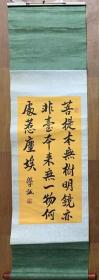 菩提本無樹明鏡亦
非臺本来無一物何
處惹塵埃 學誠